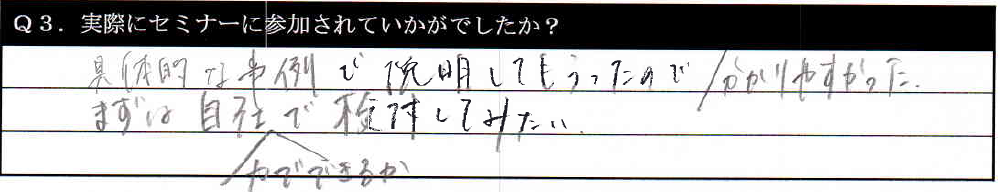 Q3．実際にセミナーに参加されていかがでしたか？
具体的な事例で説明してもらったので分かりやすかった。
まずは自社で検討してみたい。
力でできるか